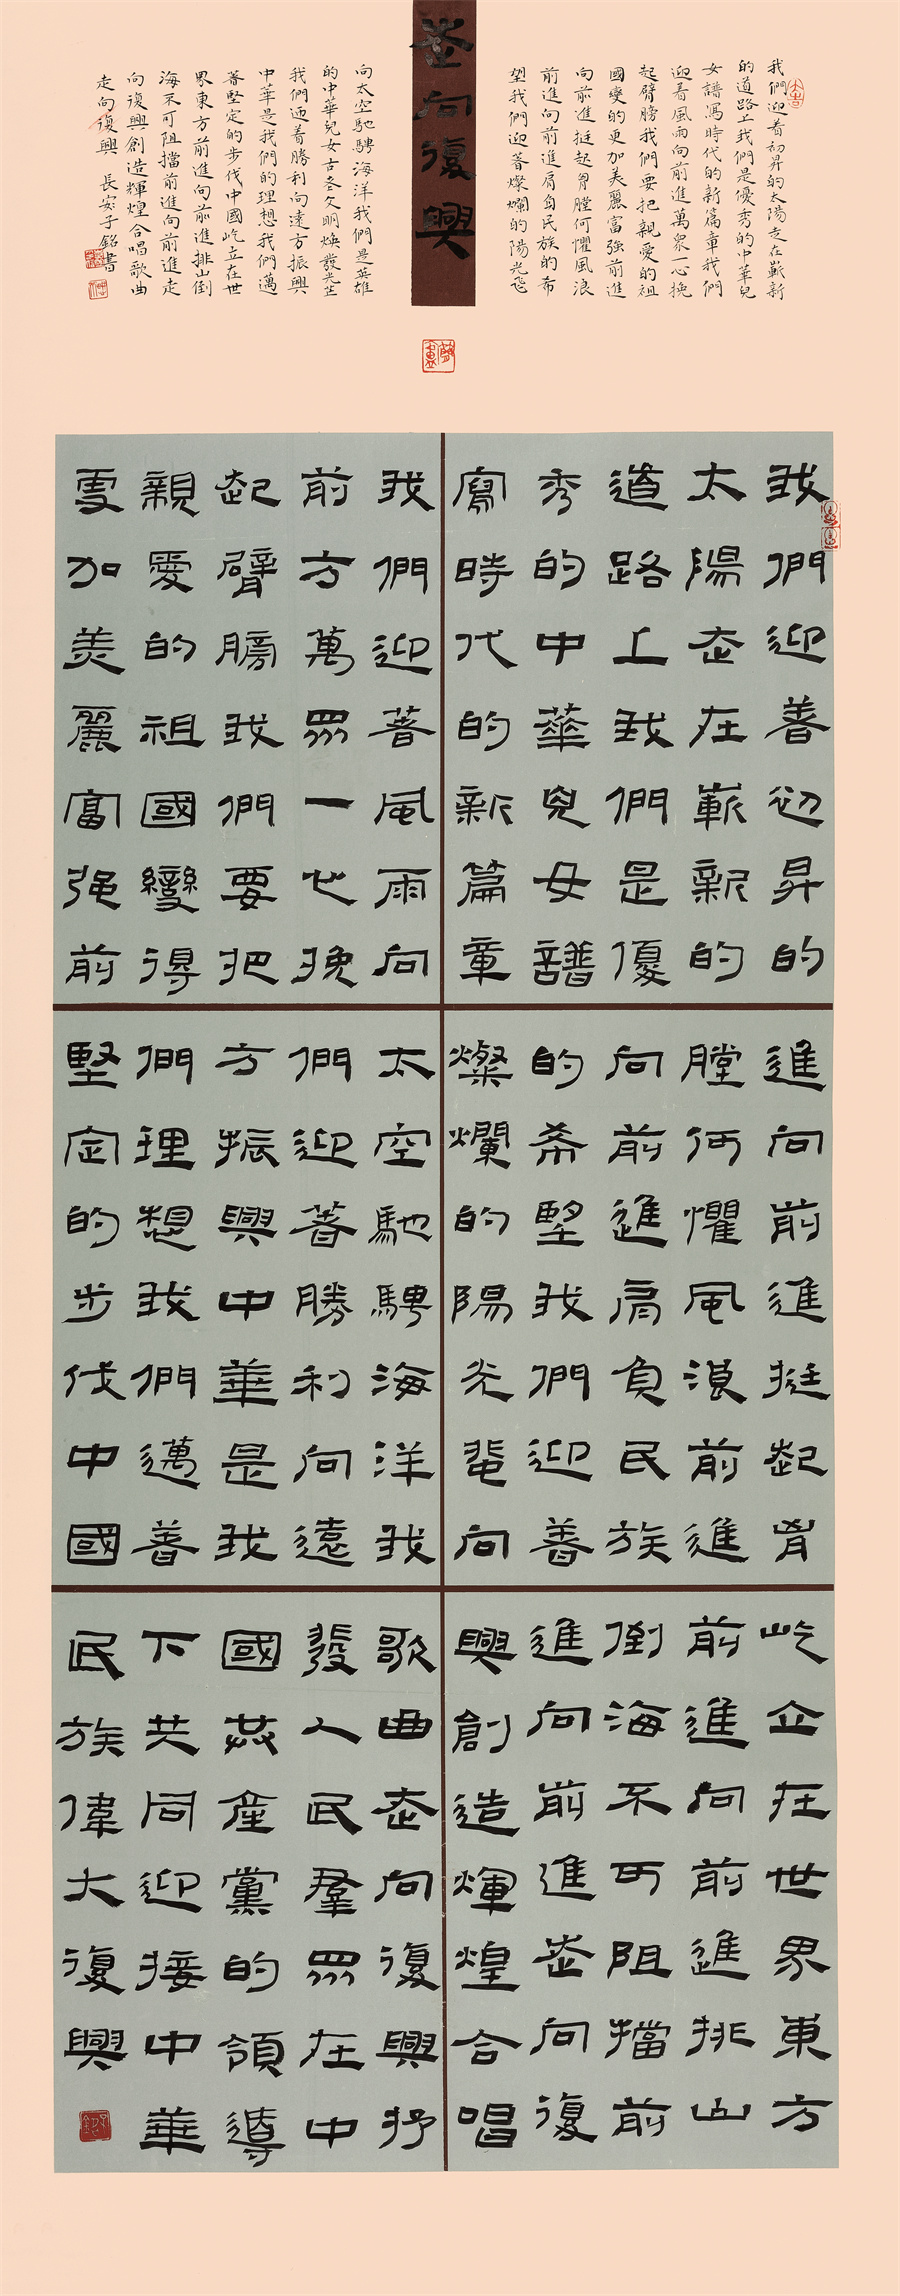 走向復興
我們迎着初昇的太陽走在嶄新
的道路上我們是優秀的中華兒
女譜寫時代的新篇章我們
迎着風雨向前進萬眾一心挽
起臂膀我們要把親愛的祖
國變的更加美麗富強前進
向前進挺起胷膛何懼風浪
前進向前進肩負民族的希
望我們迎著燦爛的陽光飛
向太空馳騁海洋我們是英雄
的中華兒女古老文明煥發光芒
我們迎着勝利向遠方振興
中華是我們的理想我們邁
著堅定的步伐中國屹立在世
界東方前進向前進排山倒
海不可阻擋前進向前進走
向復興創造輝煌合唱歌曲
走向復興 長安子銘書
我們迎着初昇的
太陽走在嶄新的
道路上我們是優
秀的中華兒女譜
寫時代的新篇章
我們迎著風雨向
前方萬眾一心挽
起臂膀我們要把
親愛的祖國變得
更加美麗富强前
進向前進挺起胷
膛何懼風浪前進
向前進肩負民族
的希望我們迎着
燦爛的陽光飛向
太空馳騁海洋我
們迎著勝利向遠
方振興中華是我
們理想我們邁着
堅定的步伐中國
屹立在世界東方
前進向前進排山
倒海不可阻擋前
進向前進走向復
興創造輝煌合唱
歌曲走向復興抒
發人民羣眾在中
國共産黨的領導
下共同迎接中華
民族偉大復興